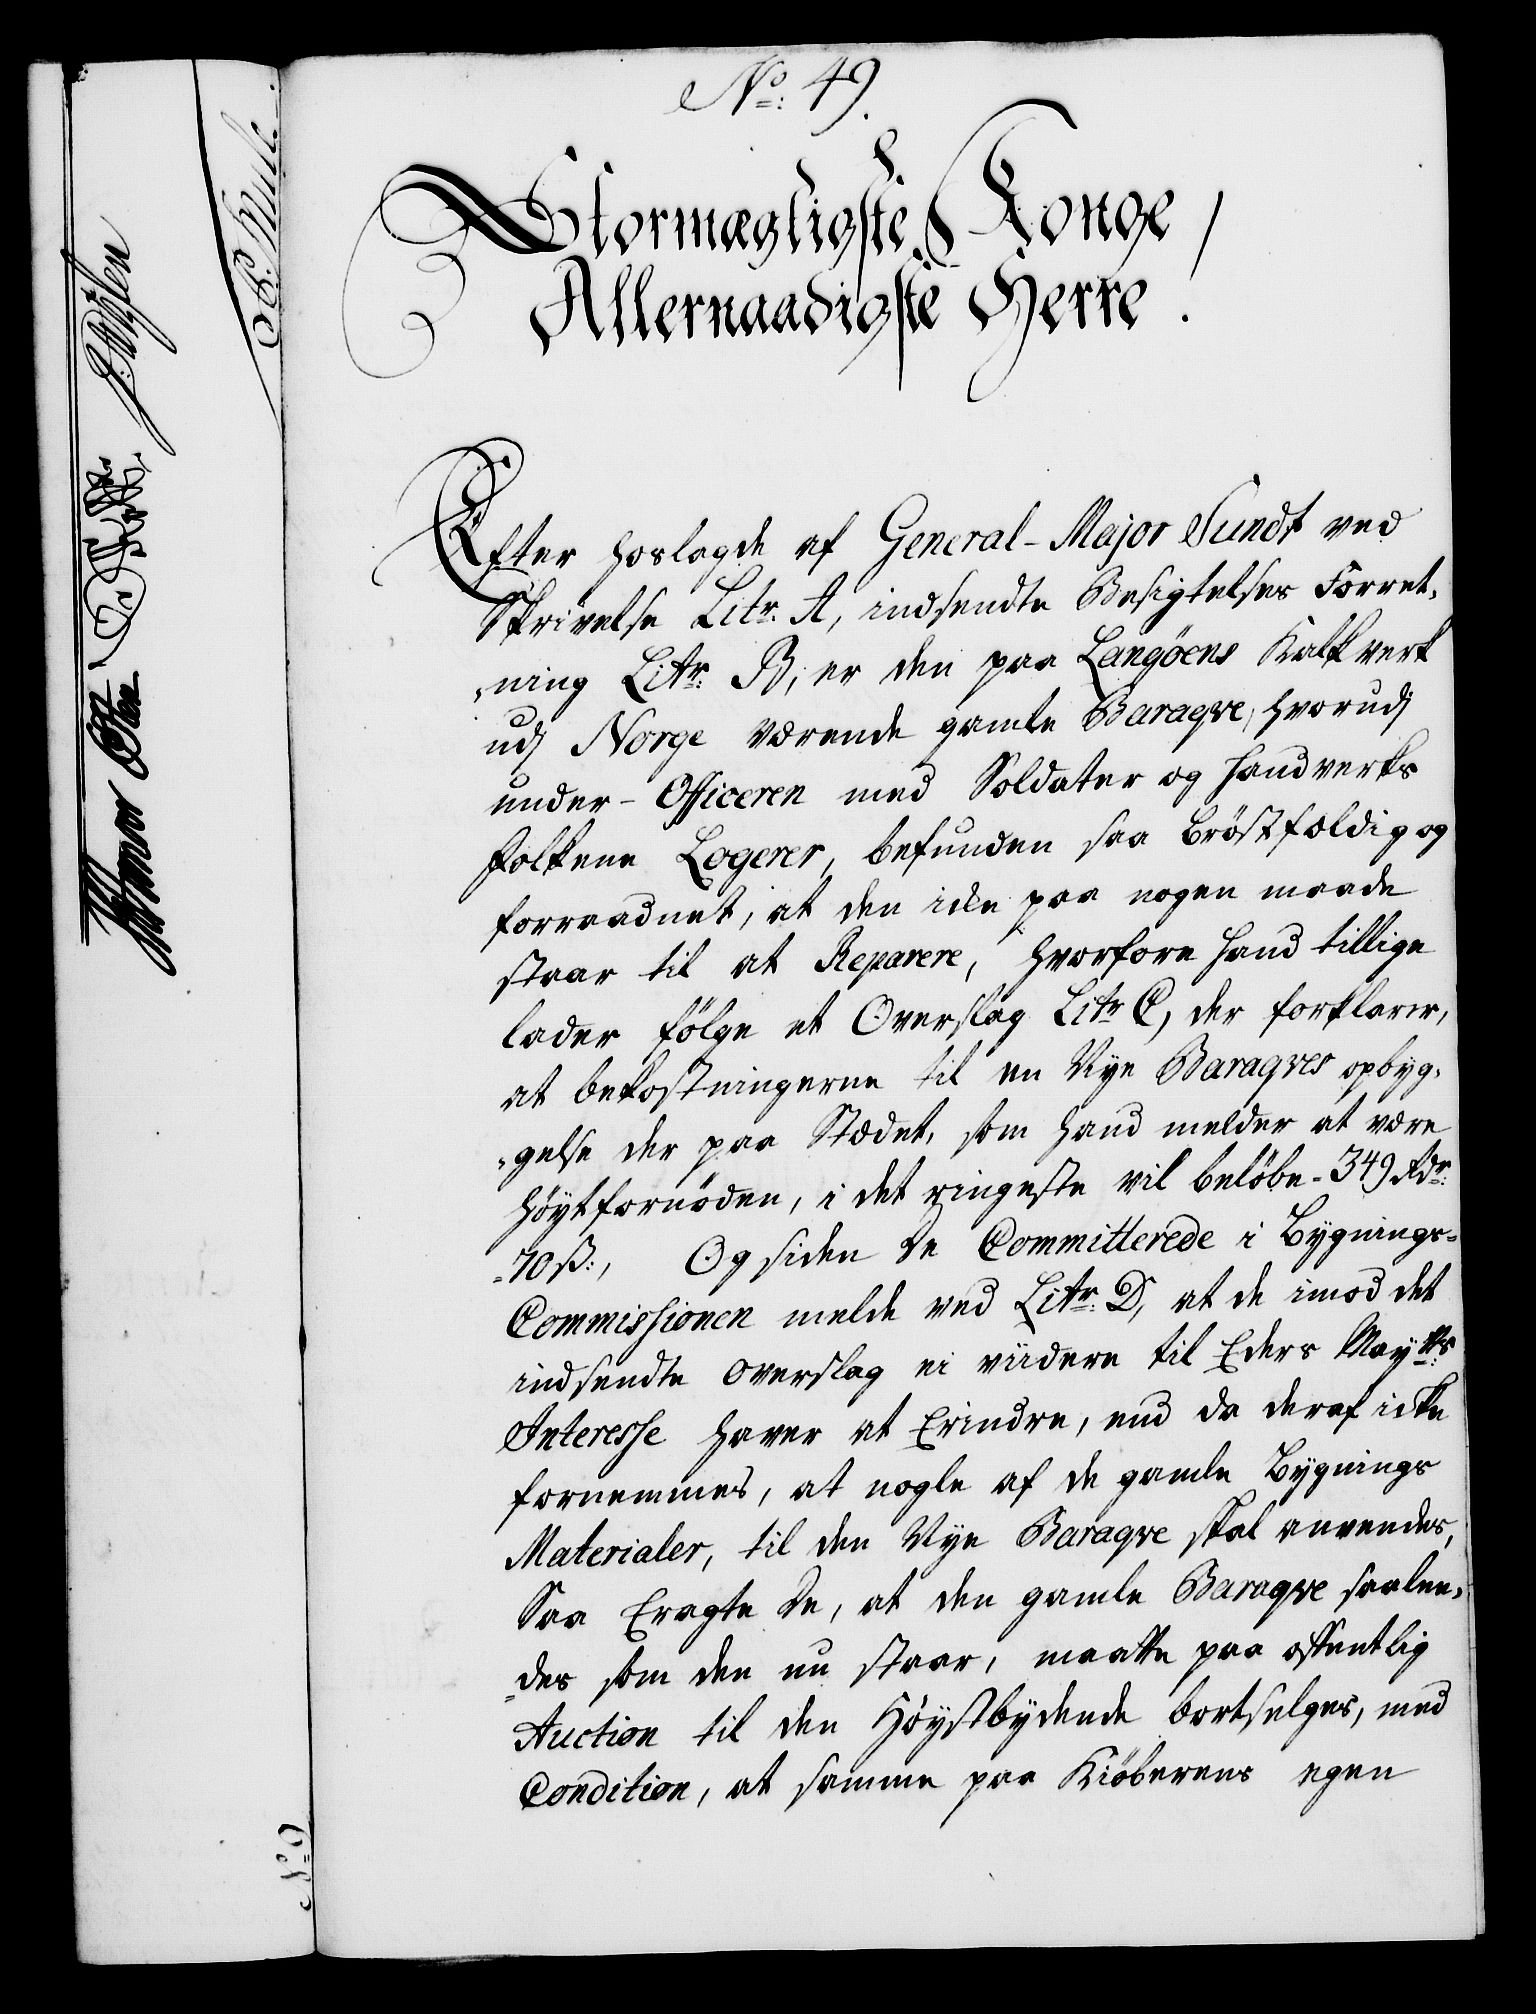 No: 49.
Stormægtigste Konge
Allernaadigste Herre!
Efter hoslagde af General-Major Sundt ved
Skrivelse Litr. A, indsendte Besigtelses Forret-
-ning Litr: B, er den paa Langöens Kalkverk
udj Norge værende gamle Baraqve, hvorudj
under-Officeren med Soldater og Handverks
folkene Logerer, befunden saa bröstfældig og
forraadnet, at den icke paa nogen maade
staar til at Reparere, hvorfore hand tillige
lader fölge et Overslag Litr C, der forklarer,
at bekostningerne til en Nye Baraqves opbyg-
-gelse der paa Stædet, som hand melder at være
höytfornöden, i det ringeste vil belöbe - 349 Rdr:
-70 ß:, Og siden De Committerede i Bygnings-
Commissionen melde ved Litr: D, at de imod det
indsendte Overslag ei viidere til Eders Mayts:
Interesse haver at Erindre, end da deraf icke
fornemmes, at nogle af de gamle Bygnings
Materialer, til den Nye Baraqve skal anvendes,
Saa Eragte De, at den gamle Baraqve saalee-
-des som den nu staar, maatte paa offentlig
Auction til den Höystbydende bortselges, med
Condition, at samme paa Kiöberens egen
No